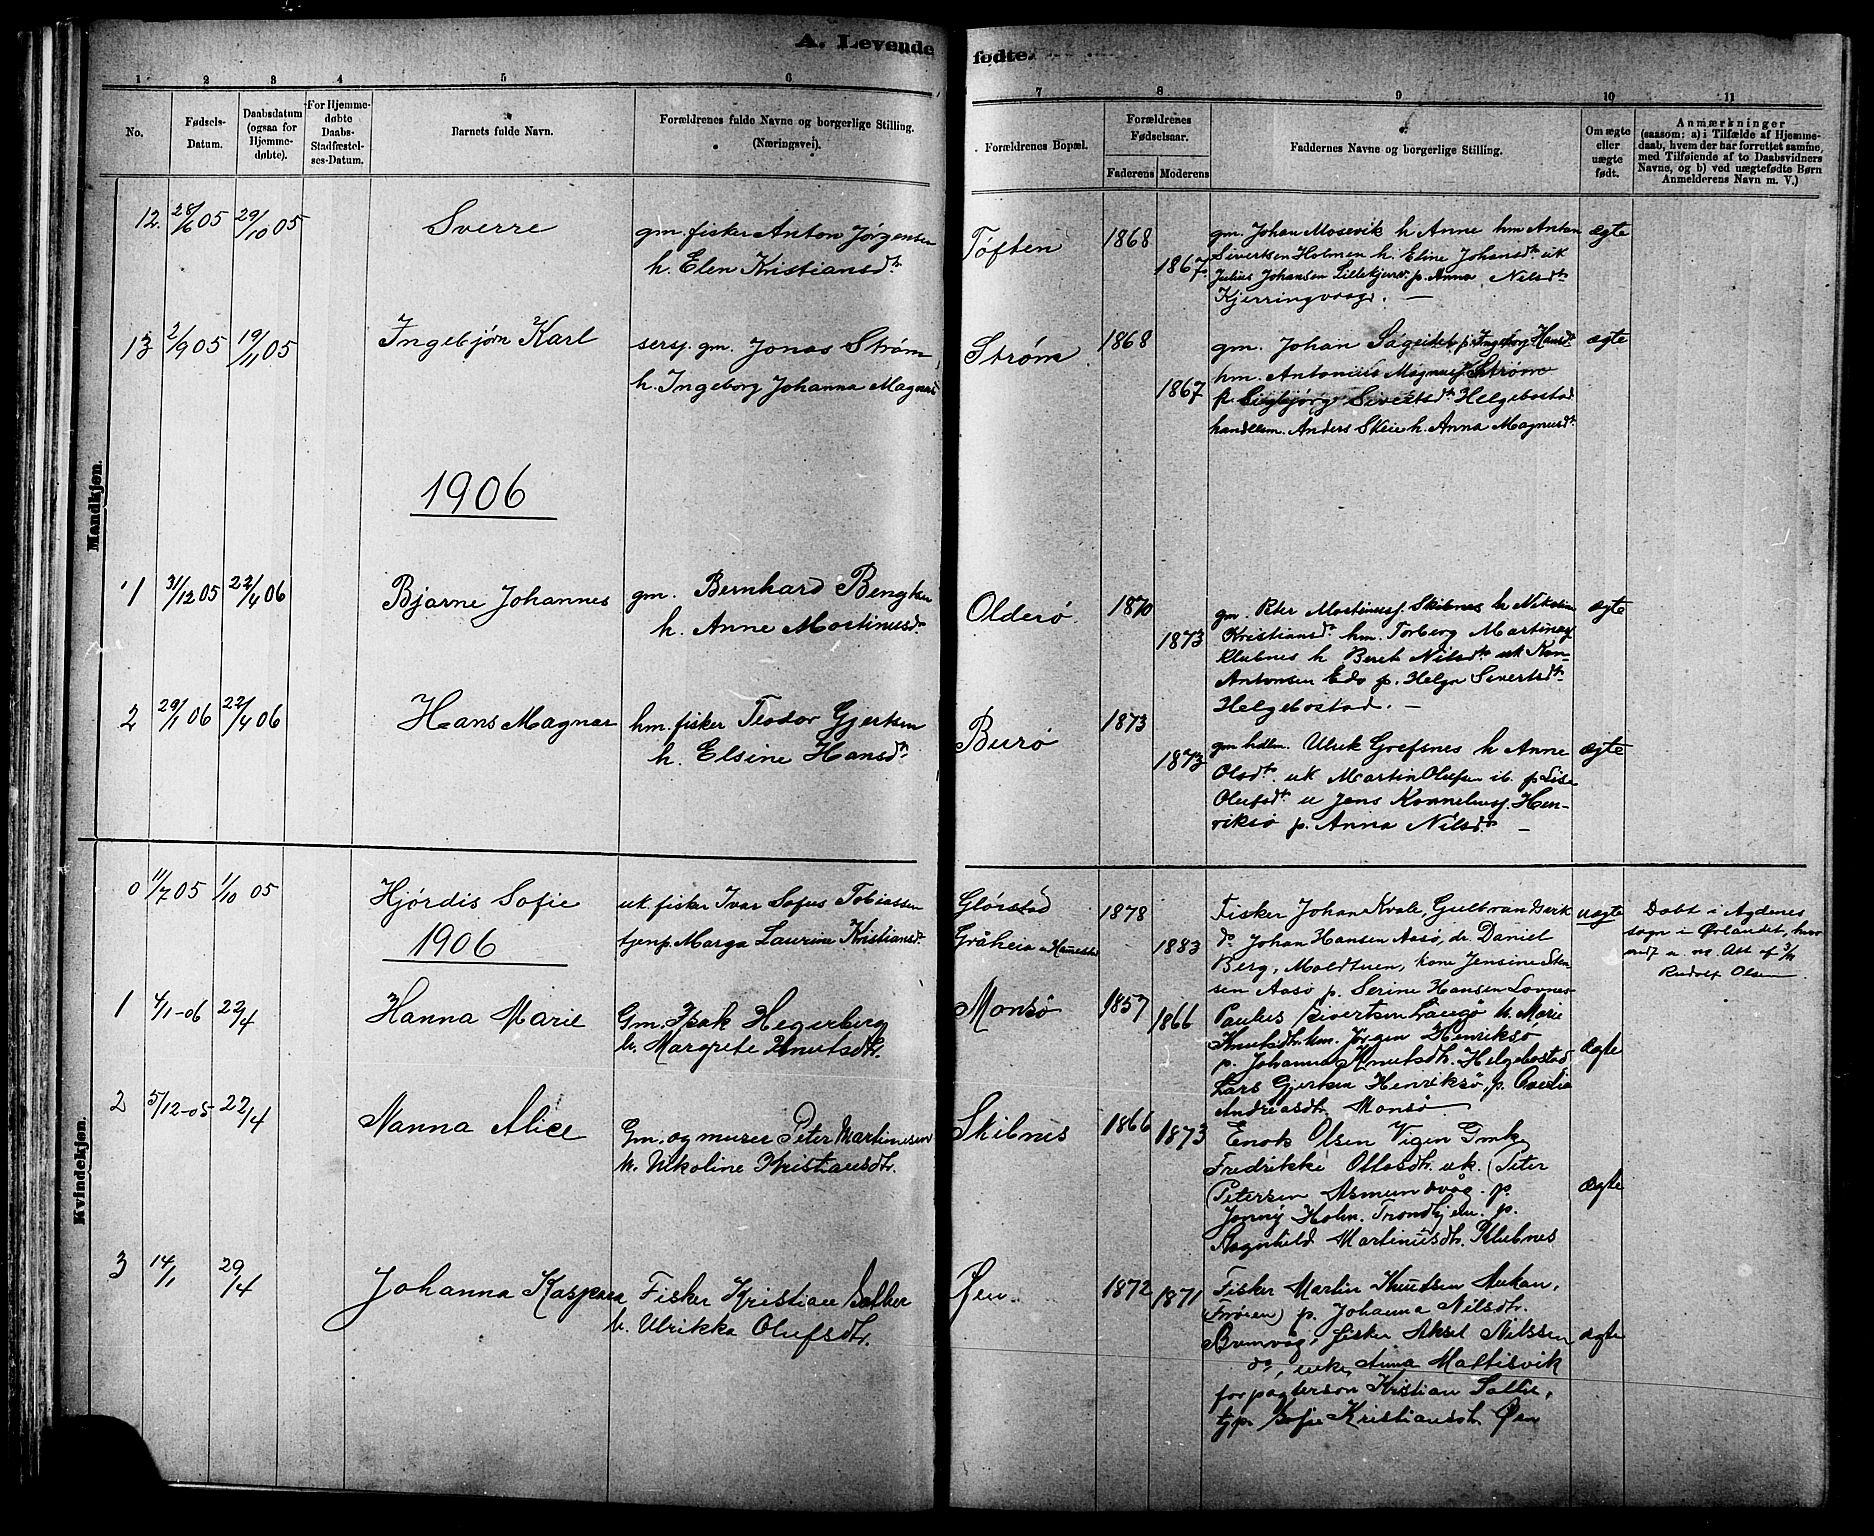 A. Levende fødte.
1 2 3 4 5 6 7 8 9 10 11
No.
Fødsels-
Datum.
Daabsdatum
(ogsaa for
Hjemme-
døbte).
For Hjemme-
døbte
Daabs-
Stadfæstel-
ses-Datum.
Barnets fulde Navn.
Forældrenes fulde Navne og borgerlige Stilling.
(Næringsvei).
Forældrenes Bopæl.
Forældrenes
Fødselsaar.
Faderens Moderens
Faddernes Navne og borgerlige Stilling.
Om ægte
eller
uægte
født.
Anmærkninger
(saasom: a) i Tilfælde af Hjemme-
daab, hvem der har forrettet samme,
med Tilføiende af to Daabsvidners
Navne, og b) ved uægtefødte Børn
Anmelderens Navn m. V.)
Mandkjøn.
12. 28/6 05 29/10 05 Sverre
gm. fisker Anton Jørgensen
h. Elen Kristiansdt.
Tøften 1868
1867
gm. Johan Mosevik h Anne hm Anton
Sivertsen Holmen h. Eline Johansdt uk
Julius Johansen Lillekjerr p. Anna Nilsdt.
Kjerringvaag. —
ægte
13 2/9 05 19/11 05 Ingebjørn Karl
sersj. gm. Jonas Strøm
h. Ingeborg Johanna Magnusd
Strøm 1868
1867
gm. Johan Sageidet p. Ingeborg Hansdt
hm. Antonius Magnusj Strøm
p. Sigbjørg Sivertsdt Helgebostad
handlem. Anders Skeie h. Anna Magnusdt.
ægte
1906
1 31/12 05 22/4 06 Bjarne Johannes
gm. Bernhard Bengtsen
h. Anne Martinusdt.
Olderø. 1870
1873
gm. Peter Martinusj. Skibnes h Nikolin
Kristiansdt. hm. Torberg Martinusj
Klubnes h Beret Nilsdt. uk
Antonsen Edv p. Helga Sivertsdt.
Helgebostad. —
ægte
2 29/1 06 22/4 06 Hans Magnar
hm. fisker Teodor Gjertsen
h. Elsine Hansdt
Burø 1873
1873
gm hdlm. Ulrik Grefsnes h Anne
Olsdt. uk Martin Olufsen ib. p Lise
Olufsdt. u Jens Kornelius. Hen-
riksø p. Anna Nilsdt. —
ægte
Kvindekjøn.
0 11/7 05 1/10 05 Hjørdis Sofie
uk. fisker Ivar Sofus Tobiassen
tjenp. Marga Laurine Kristiansdt.
Glørstad
Gråheia
1878
1883
Fisker Johan Kvale, Gulbran
do. Johan Hansen Aasø, do. Daniel
Berg, Moldtuen, kone Jensine Sten
sen Aasø p. Serine Hansen Lovnes
uægte
Døbt i Agdenes
sogn i Ørlandet,
Att af 3/11
Rudolf Olsen.
1906
1 4/1-06 22/4 Hanna Marie
Gm. Isak Hegerberg
h. Margrete Knutsdtr.
Monsø 1857 1866
Paulus Sivertsen Laugø h. Marie
Knutsdtr. hm. Jørgen Henriksø
p. Johanna Knutsdtr. Helgebostad
Lars Gjertsen Henriksø, p. Ovedia
Andreasdtr. Monsø
ægte
2 5/12-05 22/4 Nanna Alice
Gm. og murer Peter Martinusen
h. Nikoline Kristiansdtr.
Skibnes 1866 1873
Enok Olsen Vigen Gmk,
Fredrikke Ottosdtr. uk. Peter
Petersen Asmundvåg. p.
Jenny Holm. Trondhjem. p.
Ragnhild Martinusdtr. Klubnes
ægte
3 14/1 29/4 Johanna Kaspara
Fisker Kristian Sæther
h. Ulrikka Olufsdtr.
Øen 1872 1871
Fisker Martin Knudsen
(Frøien) p. Johanna Nilsdtr.
fisker Aksel Nilssen
do, enke Anna Mattisvik
forpagterson Kristian Sætter,
tjp. Sofie Kristiansdtr. Øen
ægte